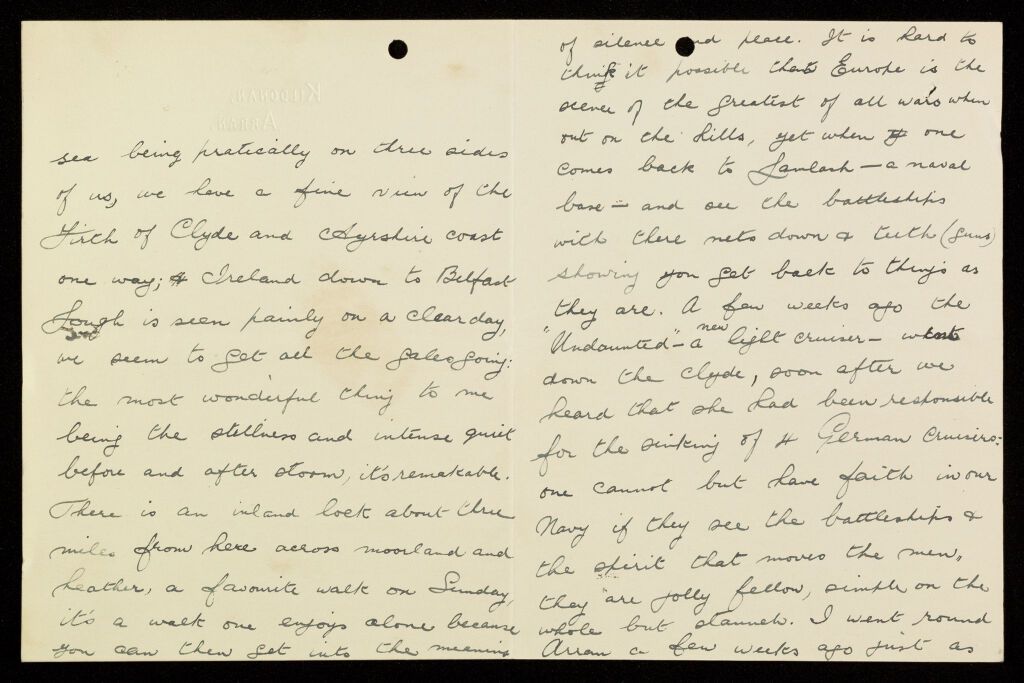 KILDONAN,
ARRAN.
sea being pratically on three sides
of us, we have a fine view of the
Firth of Clyde and Ayrshire coast
one way; & Ireland down to Belfast
Lough is seen painly on a clear day,
we seem to get all the gales going:
the most wonderful thing to me
being the stillness and intense quiet
before and after storm, it's remakable.
There is an inland lock about three
miles from here across moorland and
heather, a favourite walk on Sunday,
it's a walk one enjoys alone because
you can then get into the meaning
of silence and peace. It is hard to
think it possible that Europe is the
scene of the greatest of all wars when
out on the hills, yet when one
comes back to Lamlash — a naval
base — and see the battleships
with there nets down & teeth (guns)
showing you get back to things as
they are. A few weeks ago the
"Undaunted" - a new light cruiser - went
down the Clyde, soon after we
heard that she had been responsible
for the sinking of 4 German cruisers:
one cannot but have faith in our
Navy if they see the battleships &
the spirit that moves the men,
they are jolly fellow, simple on the
whole but staunch. I went round
Arran a few weeks ago just as